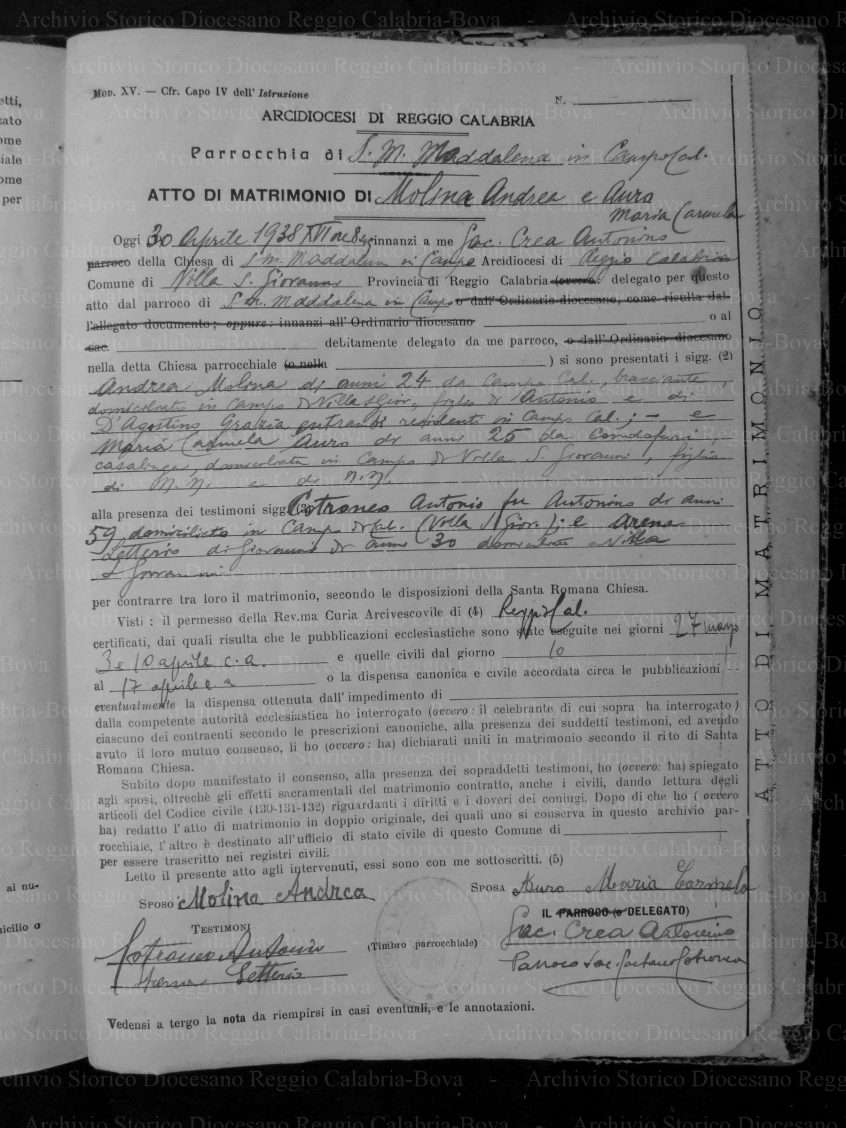 Mod. XV. — Cfr. Capo IV dell' Istruzione
N.
ARCIDIOCESI DI REGGIO CALABRIA
Parrocchia di S. M. Maddalena in Campo Cal.
ATTO DI MATRIMONIO DI Molina Andrea e Auro
Maria Carmela
Oggi 30 Aprile 1938 XVI ore 8 innanzi a me Sac. Crea Antonino
parroco della Chiesa di S. M. Maddalena in Campo Arcidiocesi di Reggio Calabria
Comune di Villa S. Giovanni Provincia di Reggio Calabria (ovvero: delegato per questo
atto dal parroco di S. M. Maddalena in Campo o dall' Ordinario diocesano, come risulta dal-
l'allegato documento; oppure: innanzi all' Ordinario diocesano o al
sac. debitamente delegato da me parroco, o dall' Ordinario diocesano
nella detta Chiesa parrocchiale (o nella ) si sono presentati i sigg. (2)
Andrea Molina di anni 24 da Campo Cal., bracciante,
domiciliato in Campo di Villa S Giov., figlio di Antonio e di
D'Agostino Grazia entrambi residenti in Campo Cal.; — e
Maria Carmela Auro di anni 25 da Condofuri,
casalinga, domiciliata in Campo di Villa S. Giovanni, figlia
di N. N. e di N. N.
alla presenza dei testimoni sigg. (3) Cotroneo Antonio fu Antonino di anni
59 domiciliato in Campo di Cal. (Villa S Giov.); e Arena
Letterio di Giovanni di anni 30 domiciliato Villa
S Giovanni
per contrarre tra loro il matrimonio, secondo le disposizioni della Santa Romana Chiesa.
Visti: il permesso della Rev.ma Curia Arcivescovile di (4) Reggio Cal.
certificati, dai quali risulta che le pubblicazioni ecclesiastiche sono state eseguite nei giorni 27 marzo
3 e 10 aprile c. a. e quelle civili dal giorno 10
al 17 aprile c. a o la dispensa canonica e civile accordata circa le pubblicazioni
eventualmente la dispensa ottenuta dall'impedimento di
dalla competente autorità ecclesiastica ho interrogato (ovvero: il celebrante di cui sopra ha interrogato)
ciascuno dei contraenti secondo le prescrizioni canoniche, alla presenza dei suddetti testimoni, ed avendo
avuto il loro mutuo consenso, li ho (ovvero: ha) dichiarati uniti in matrimonio secondo il rito di Santa
Romana Chiesa.
Subito dopo manifestato il consenso, alla presenza dei sopraddetti testimoni, ho (ovvero: ha) spiegato
agli sposi, oltrechè gli effetti sacramentali del matrimonio contratto, anche i civili, dando lettura degli
articoli del Codice civile (130-131-132) riguardanti i diritti e i doveri dei coniugi. Dopo di che ho (ovvero
ha) redatto l'atto di matrimonio in doppio originale, dei quali uno si conserva in questo archivio par-
rocchiale, l'altro è destinato all'ufficio di stato civile di questo Comune di
per essere trascritto nei registri civili.
Letto il presente atto agli intervenuti, essi sono con me sottoscritti. (5)
SPOSO Molina Andrea
SPOSA Auro Maria Carmela
TESTIMONI
IL PARROCO (o DELEGATO)
Cotroneo Antonio
(Timbro parrocchiale)
Sac. Crea Antonino
Arena Letterio
Parroco Sac. Gaetano Cotronea
Vedensi a tergo la nota da riempirsi in casi eventuali, e le annotazioni.
ATTO DI MATRIMONIO
etti,
zato
ome
iale
ome
per
ai nu-
micilio o
Archivio Storico Diocesano Reggio Calabria-Bova